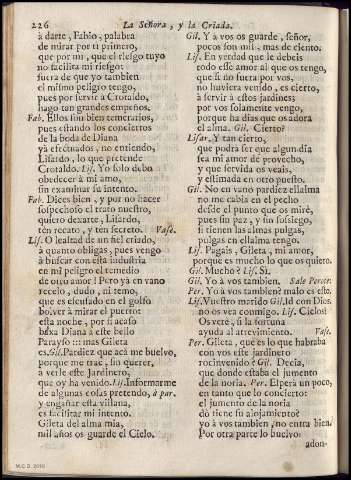 226 La Señora, y la Criada.
à darte, Fabio, palabra
de mirar por ti primero,
que por mi, que el riesgo tuyo
no facilita mi riesgo:
fuera de que yo tambien
el mismo peligro tengo,
pues por servir a Crotaldo,
hago tan grandes empeños.
Fab. Ellos son bien temerarios,
pues estando los conciertos
de la boda de Diana
yà efectuados, no entiendo,
Lisardo, lo que pretende
Crotaldo. Lis. Yo solo debo
obedecer à mi amo,
sin examinar su intento.
Fab. Dices bien, y por no hacer
sospechoso el trato nuestro,
quiero dexarte, Lisardo,
tèn recato, y ten secreto. Vase.
Lis. O lealtad de un fiel criado,
à quanto obligas, pues vengo
à buscar con esta industria
en mi peligro el remedio
de otro amor! Pero yà en vano
recelo, dudo, ni temo,
que es escusado en el golfo
bolver à mirar el puerto:
esta noche, por si acaso
baxa Diana à este bello
Parayso ::: mas Gileta
es. Gil. Pardiez que acà me buelvo,
porque me trae, sin querer,
à verle este Jardinero,
que oy ha venido. Lis. Informarme
de algunas cosas pretendo, à par.
y engañar esta villana,
es facilitar mi intento.
Gileta del alma mia,
mil años os guarde el Cielo.
Gil. Y à vos os guarde, señor,
pocos son mil, mas de ciento.
Lis. En verdad que le debeis
todo esse amor al que os tengo,
que si no fuera por vos,
no huviera venido, es cierto,
à servir à estos jardines;
por vos solamente vengo,
porque ha dias que os adora
el alma. Gil. Cierto?
Lisar. Y tan cierto,
que podrà ser que algun dia
sea mi amor de provecho,
y que servida os veais,
y estimada en otro puesto.
Gil. No en vano pardiez ellalma
no me cabia en el pecho
desde el punto que os mirè,
pues sin paz, y sin sossiego,
si tienen las almas pulgas,
pulgas en ellalma tengo.
Lis. Pagais, Gileta, mi amor,
porque es mucho lo que os quiero.
Gil. Mucho? Lis. Si.
Gil. Yo à vos tambien. Sale Perote.
Per. Yo à vos tambien? malo es esto.
Lis. Vuestro marido Gil. Id con Dios,
no os vea conmigo. Lis. Cielos!
Os verè, si la fortuna
ayuda al atrevimiento. Vase.
Per. Gileta, que es lo que habraba
con vos este jardinero
rocinvenido? Gil. Decia,
que donde estaba el jumento
de la noria. Per. Esperà un poco,
en tanto que lo concierto:
el jumento de la noria
dò tiene su alojamiento?
yo à vos tambien, no entra bien:
Por otra parte lo buelvo.
adon-
M.C.D. 2010